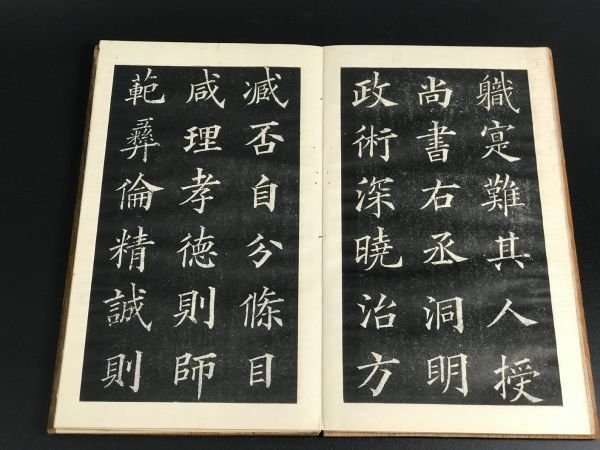 軄寔難其人授
尚書右丞洞明
政術深曉治方
臧否自分條目
咸理孝德則師
範彞倫精誠則